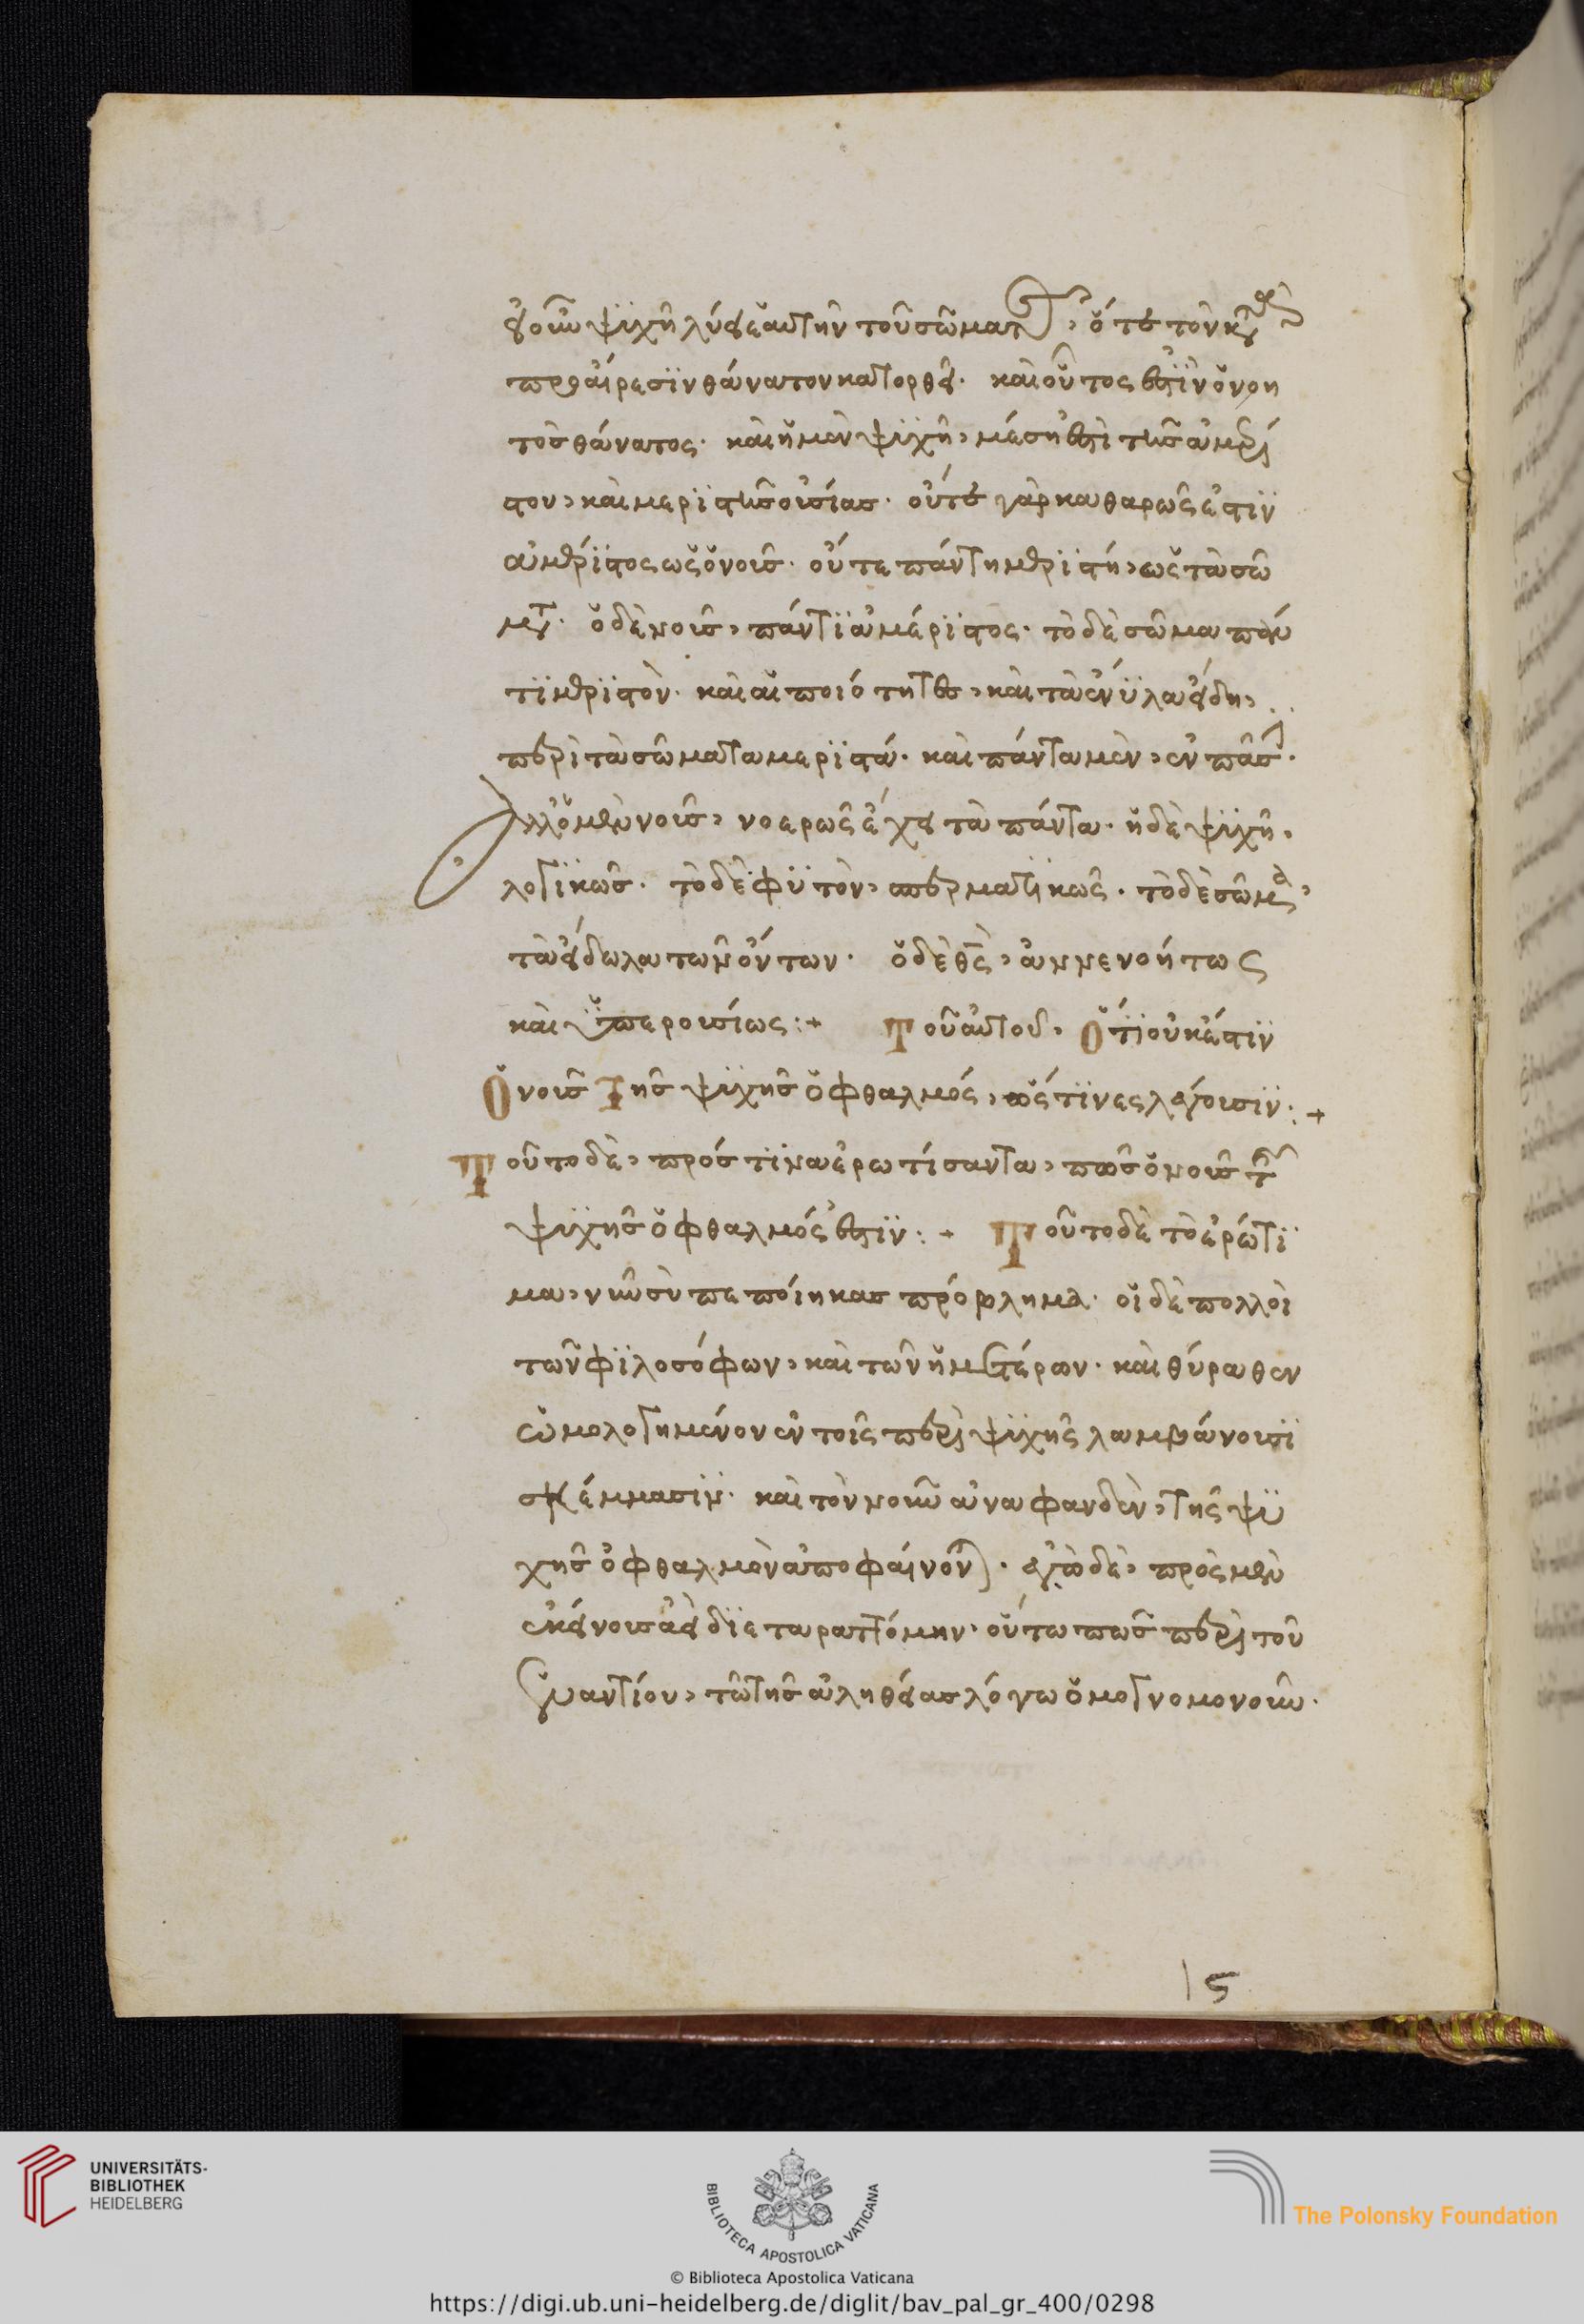 εἰ οὖν ψϋχὴ λύει ἑαυτὴν τοῦ σώματος, ὅτε τὸν κατὰ
προαίρεσϊν θάνατον κατορθεῖ. καὶ οὗτος ἐστϊν ὁ νοη
τὸς θάνατος. καὶ ἡ μὲν ψϋχὴ, μέση ἐστὶ τῆς ἀμερί
στου, καὶ μερϊστῆς οὐσίας. οὔτε γὰρ καθαρῶς ἐστϊν
ἀμέρϊστος ὡς ὁ νοῦς. οὔτε πάντη μερϊστή, ὡς τὰ σώ
ματα. ὁ δὲ νοῦς, πάντϊ ἀμέρϊστος. τὸ δὲ σῶμα πάν
τϊ μερϊστὸν. καὶ αἱ ποιότητες, καὶ τὰ ἔνϋλα εἴδη,
περὶ τὰ σώματα μερϊστά. καὶ πάντα μὲν, ἐν πᾶσι.
ἀλλ' ὁ μὲν νοῦς, νοερῶς ἔχει τὰ πάντα. ἡ δὲ ψϋχὴ,
λογϊκῶς. τὸ δὲ φϋτὸν, σπερματϊκῶς. τὸ δὲ σῶμα,
τὰ εἴδωλα τῶν ὄντων. ὁ δὲ θς, ἀννενοήτως
καὶ ὑπερουσίως:+ Τοῦ αὐτοῦ, Ὅτϊ οὐκ ἔστϊν
Ὁ νοῦς Της ψϋχῆς ὀφθαλμός, ὥς τϊνες λέγουσϊν:+
Τοῦτο δὲ, πρός τϊνα ἐρωτίσαντα, πῶς ὁ νοῦς τῆς
ψϋχῆς ὀφθαλμός ἐστϊν:+ Τοῦτο δὲ τὸ ἐρώτϊ
μα, νῦν σὺ πεποίηκας πρόβλημα. οἱ δὲ πολλοὶ
τῶν φϊλοσόφων, καὶ τῶν ἡμετέρων. καὶ θύραθεν
ὡμολογημένον ἐν τοῖς περὶ ψϋχῆς λαμβάνουσϊ
σκέμμασϊν. καὶ τὸν νοῦν ἀναφανδὸν, τῆς ψϋ
χῆς ὀφθαλμὸν ἀποφαίνονται. ἐγὼ δὲ, πρὸς μὲν
ἐκείνους ἀεὶ δϊεταραττόμην. οὕτω πως περὶ τοῦ
ἐναντίου, τῶ τῆς ἀληθείας λόγω ὁμογνομονοῦν.
15
UNIVERSITÄTS-
BIBLIOTHEK
HEIDELBERG
BIBLIOTECA APOSTOLICA VATICANA
The Polonsky Foundation
© Biblioteca Apostolica Vaticana
https://digi.ub.uni-heidelberg.de/diglit/bav_pal_gr_400/0298